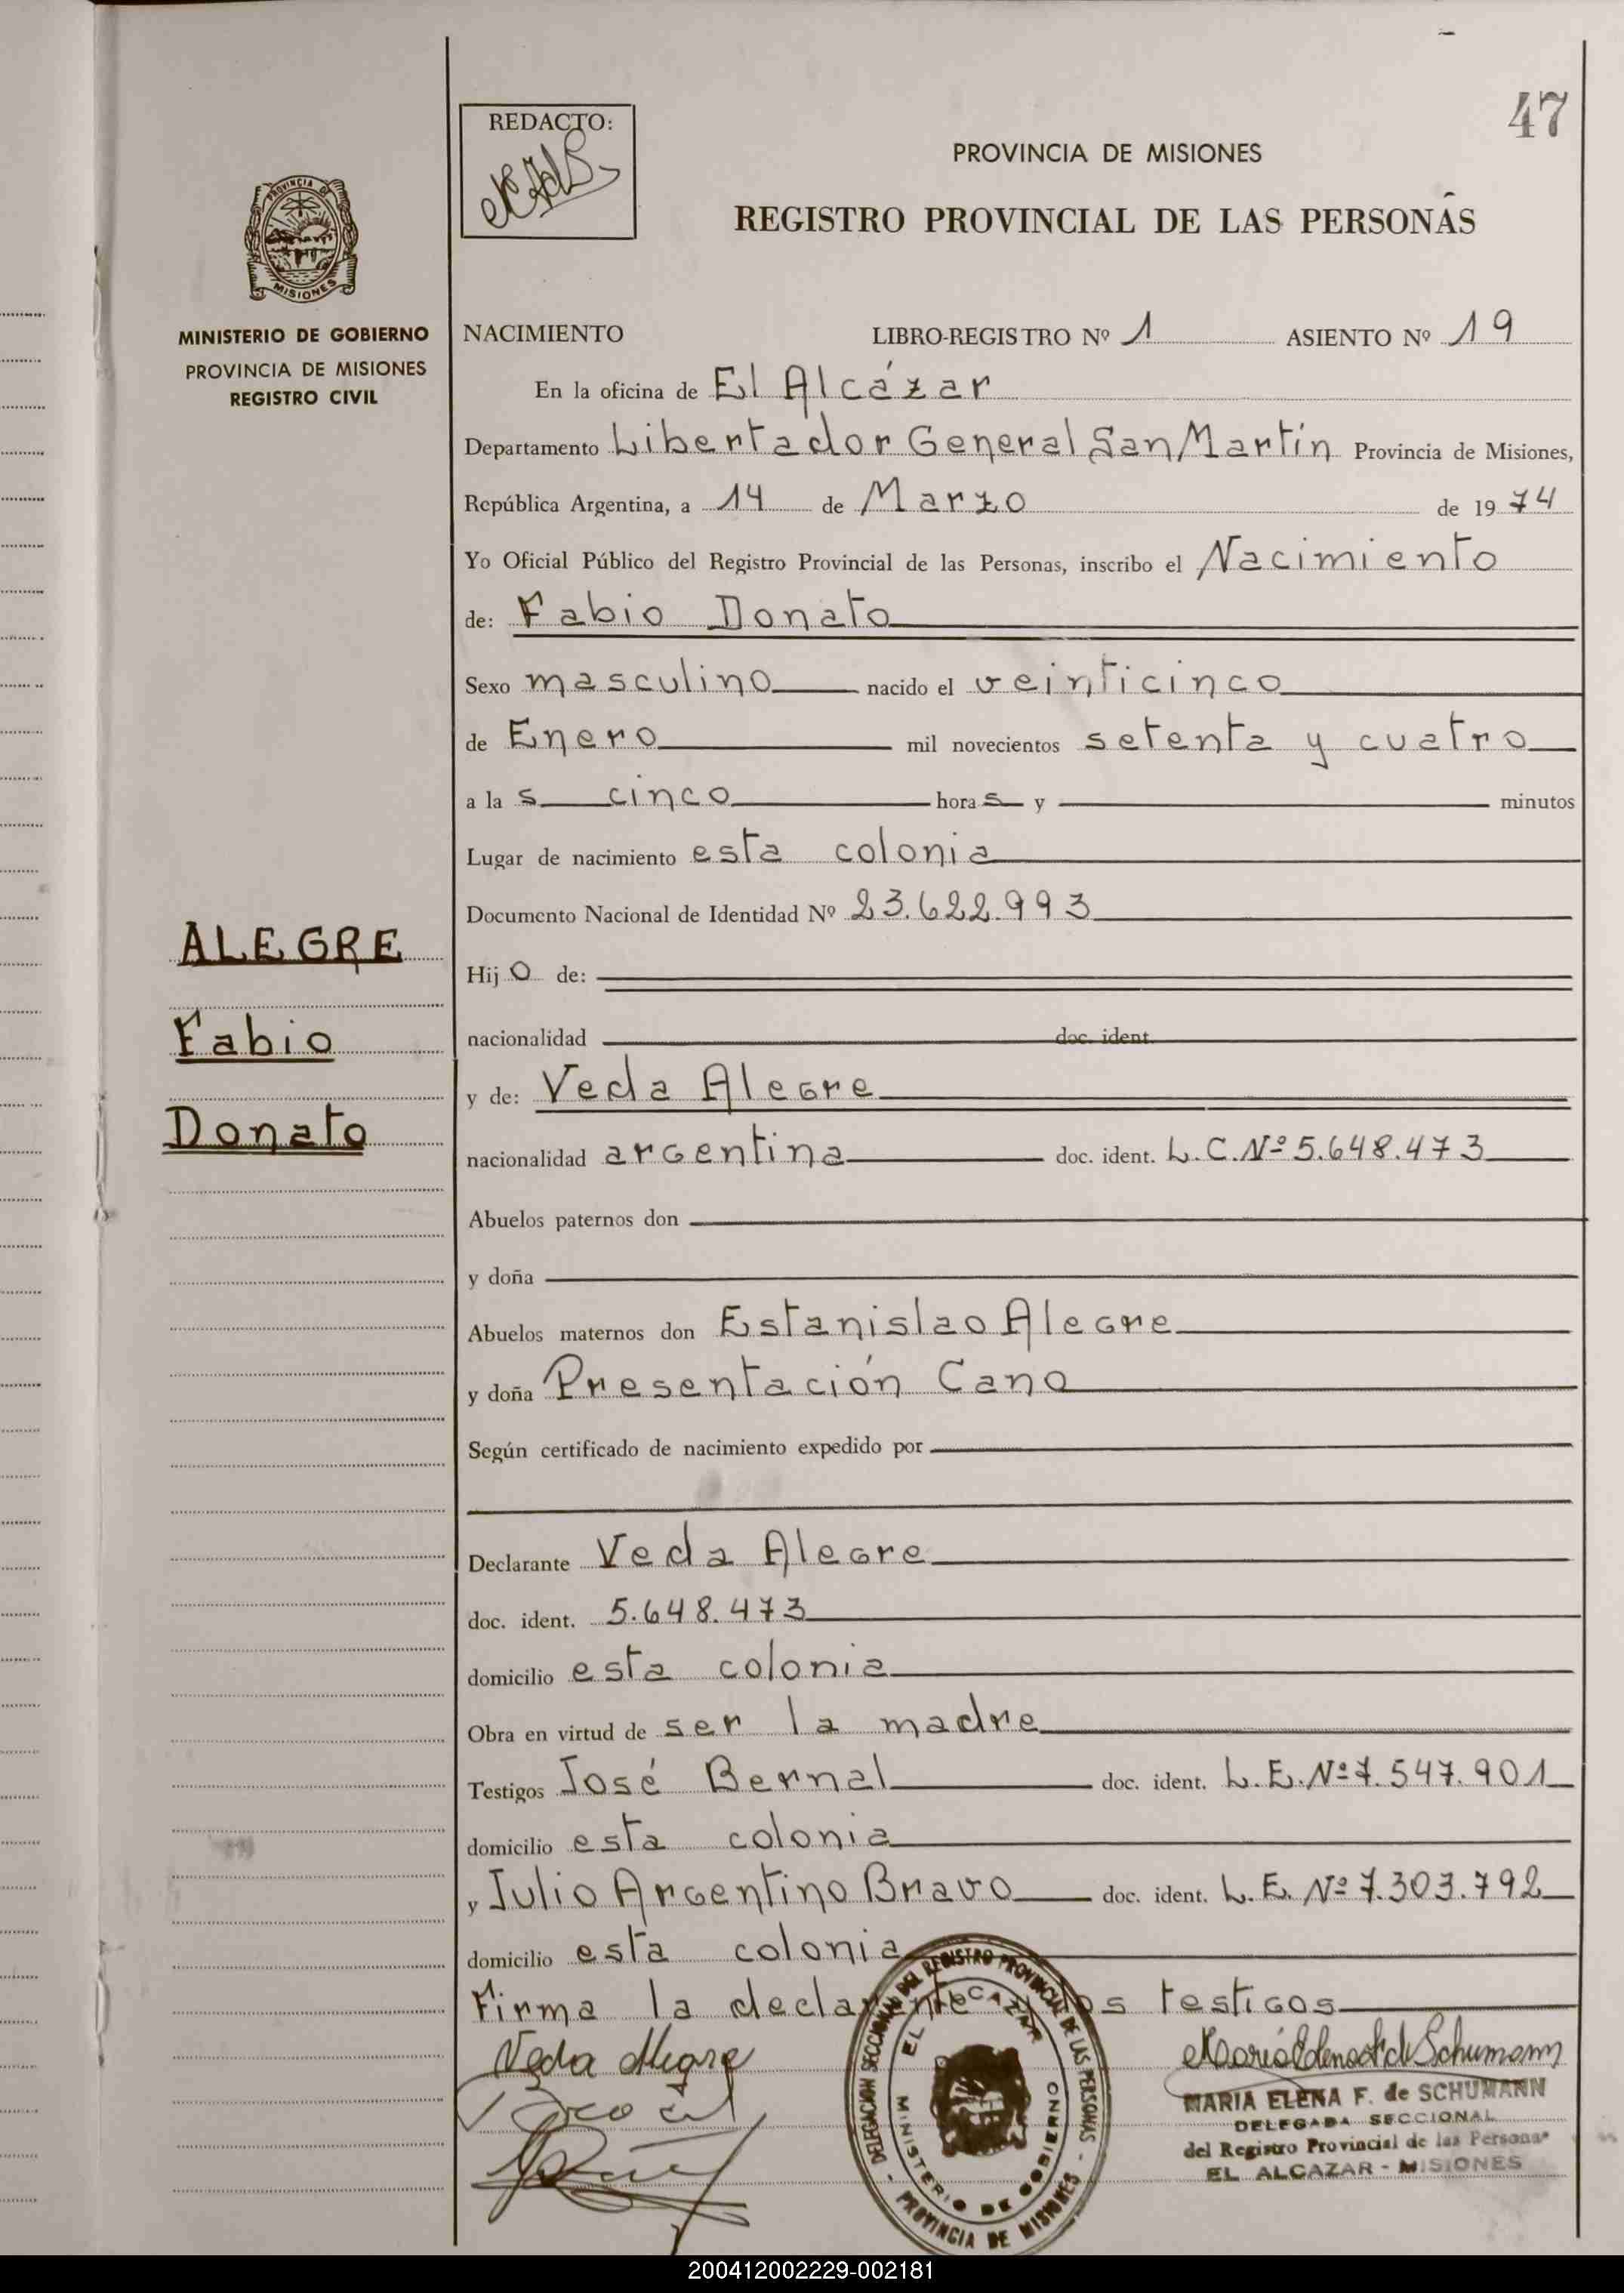 47
REDACTO:
PROVINCIA DE MISIONES
REGISTRO PROVINCIAL DE LAS PERSONAS
PROVINCIA DE
MISIONES
MINISTERIO DE GOBIERNO
PROVINCIA DE MISIONES
REGISTRO CIVIL
NACIMIENTO LIBRO-REGISTRO Nº 1 ASIENTO Nº 19
En la oficina de El Alcázar
Departamento Libertador General San Martín Provincia de Misiones,
República Argentina, a 14 de Marzo de 1974
Yo Oficial Público del Registro Provincial de las Personas, inscribo el Nacimiento
de: Fabio Donato
Sexo masculino nacido el veinticinco
de Enero mil novecientos setenta y cuatro
a las cinco horas y minutos
Lugar de nacimiento esta colonia
Documento Nacional de Identidad Nº 23.622.993
ALEGRE
Fabio
Donato
Hijo de:
nacionalidad doc. ident.
y de: Veda Alegre
nacionalidad argentina doc. ident. L.C.Nº 5.648.473
Abuelos paternos don
y doña
Abuelos maternos don Estanislao Alegre
y doña Presentación Cano
Según certificado de nacimiento expedido por
Declarante Veda Alegre
doc. ident. 5.648.473
domicilio esta colonia
Obra en virtud de ser la madre
Testigos José Bernal doc. ident. L.E.Nº 7.547.901
domicilio esta colonia
y Julio Argentino Bravo doc. ident. L.E. Nº 7.303.792
domicilio esta colonia
Firma la declarante y los testigos
Veda Alegre
DELEGACION SECCIONAL DEL REGISTRO PROVINCIAL DE LAS PERSONAS
EL ALCAZAR
MINISTERIO DE GOBIERNO
- PROVINCIA DE MISIONES -
MARIA ELENA F. de SCHUMANN
DELEGADA SECCIONAL
del Registro Provincial de las Personas
EL ALCAZAR - MISIONES
200412002229-002181